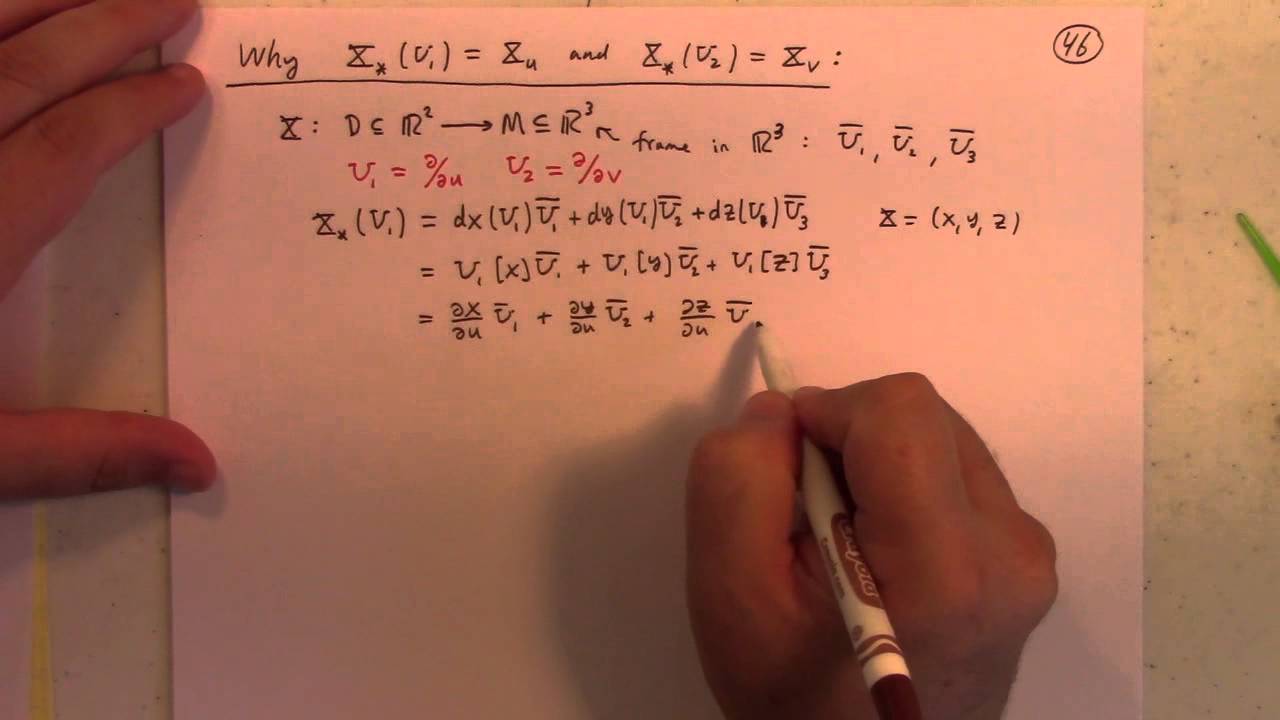 Why X_*(U₁) = X_u and X_*(U₂) = X_v :
46
X : D ⊆ ℝ² ⟶ M ⊆ ℝ³ ↖ frame in ℝ³ : U̅₁, U̅₂, U̅₃
U₁ = ∂/∂u U₂ = ∂/∂v
X_*(U₁) = dx(U₁)U̅₁ + dy(U₁)U̅₂ + dz(U₁)U̅₃ X = (x, y, z)
= U₁[x]U̅₁ + U₁[y]U̅₂ + U₁[z]U̅₃
= ∂x/∂u U̅₁ + ∂y/∂u U̅₂ + ∂z/∂u U̅
Crayola